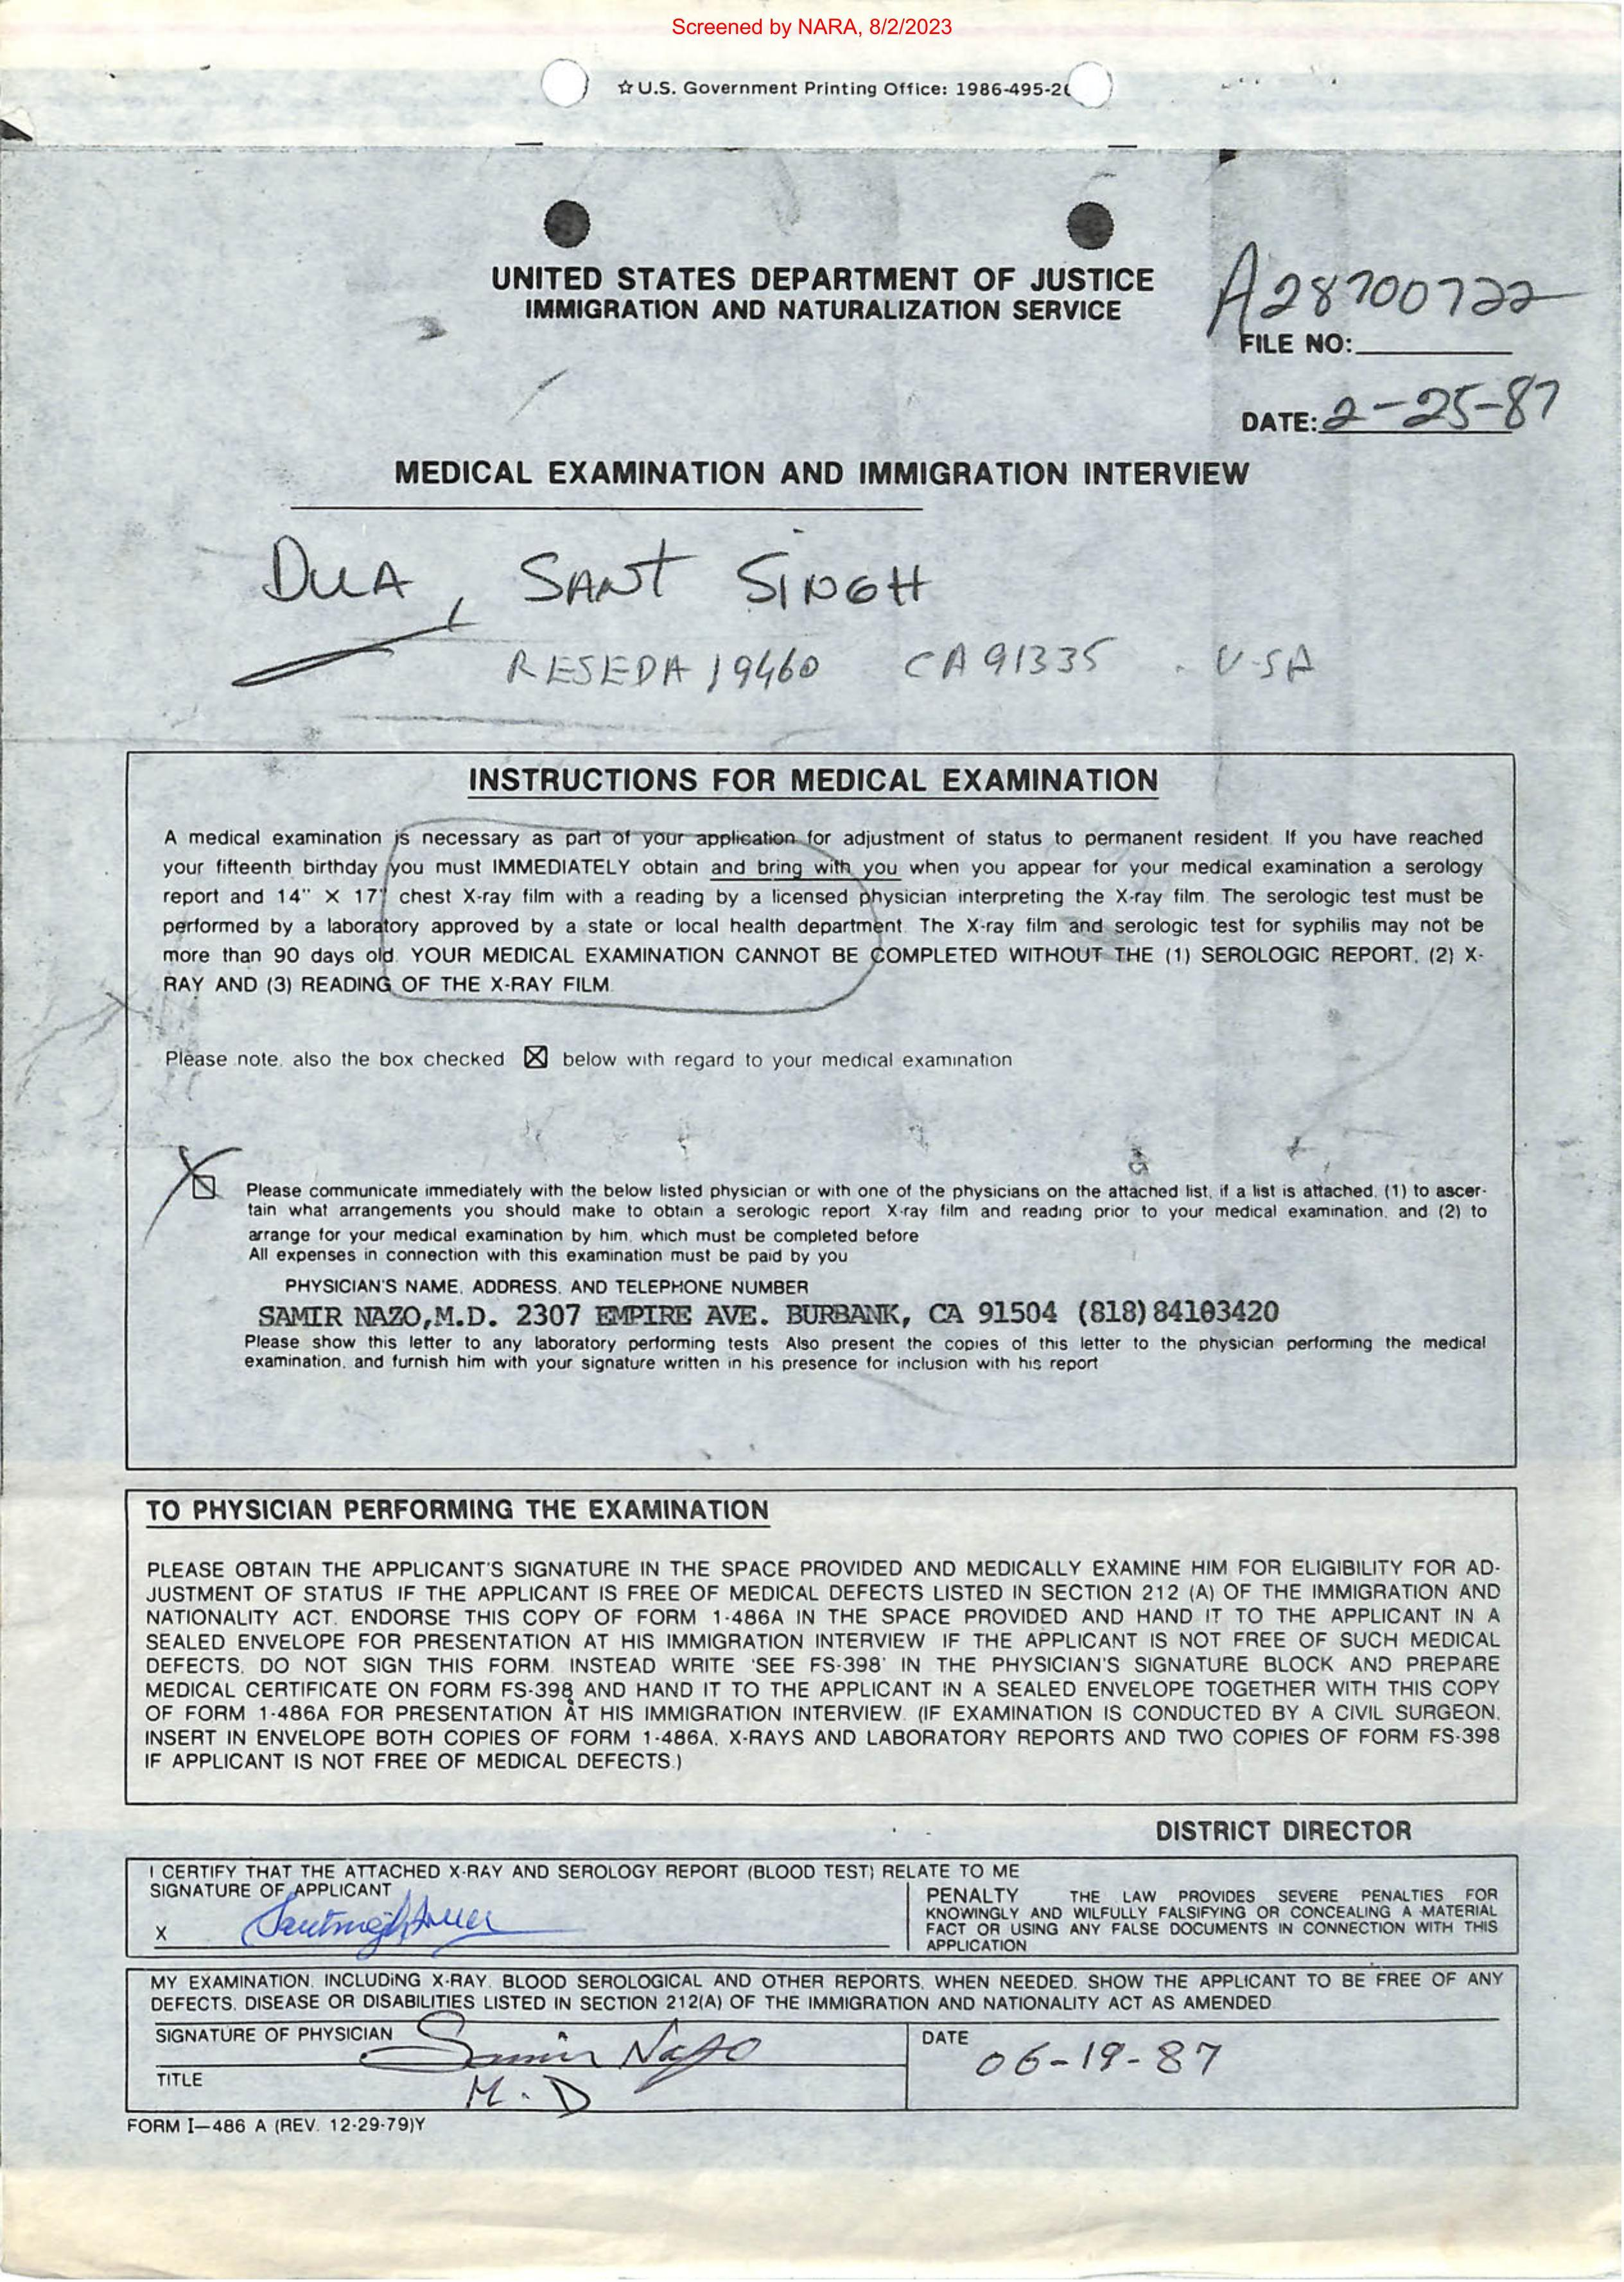 Screened by NARA, 8/2/2023
☆ U.S. Government Printing Office: 1986-495-26
UNITED STATES DEPARTMENT OF JUSTICE
IMMIGRATION AND NATURALIZATION SERVICE
A28700722
FILE NO:
DATE: 2-25-87
MEDICAL EXAMINATION AND IMMIGRATION INTERVIEW
DUA, SANT SINGH
RESEDA 19460 CA 91335 . USA
INSTRUCTIONS FOR MEDICAL EXAMINATION
A medical examination is necessary as part of your application for adjustment of status to permanent resident. If you have reached
your fifteenth birthday you must IMMEDIATELY obtain and bring with you when you appear for your medical examination a serology
report and 14" X 17" chest X-ray film with a reading by a licensed physician interpreting the X-ray film. The serologic test must be
performed by a laboratory approved by a state or local health department. The X-ray film and serologic test for syphilis may not be
more than 90 days old. YOUR MEDICAL EXAMINATION CANNOT BE COMPLETED WITHOUT THE (1) SEROLOGIC REPORT, (2) X-
RAY AND (3) READING OF THE X-RAY FILM.
Please note, also the box checked ☒ below with regard to your medical examination
Please communicate immediately with the below listed physician or with one of the physicians on the attached list, if a list is attached, (1) to ascer-
tain what arrangements you should make to obtain a serologic report X-ray film and reading prior to your medical examination, and (2) to
arrange for your medical examination by him, which must be completed before
All expenses in connection with this examination must be paid by you
PHYSICIAN'S NAME, ADDRESS, AND TELEPHONE NUMBER
SAMIR NAZO,M.D. 2307 EMPIRE AVE. BURBANK, CA 91504 (818)84103420
Please show this letter to any laboratory performing tests Also present the copies of this letter to the physician performing the medical
examination, and furnish him with your signature written in his presence for inclusion with his report
TO PHYSICIAN PERFORMING THE EXAMINATION
PLEASE OBTAIN THE APPLICANT'S SIGNATURE IN THE SPACE PROVIDED AND MEDICALLY EXAMINE HIM FOR ELIGIBILITY FOR AD-
JUSTMENT OF STATUS IF THE APPLICANT IS FREE OF MEDICAL DEFECTS LISTED IN SECTION 212 (A) OF THE IMMIGRATION AND
NATIONALITY ACT. ENDORSE THIS COPY OF FORM 1-486A IN THE SPACE PROVIDED AND HAND IT TO THE APPLICANT IN A
SEALED ENVELOPE FOR PRESENTATION AT HIS IMMIGRATION INTERVIEW IF THE APPLICANT IS NOT FREE OF SUCH MEDICAL
DEFECTS, DO NOT SIGN THIS FORM INSTEAD WRITE 'SEE FS-398' IN THE PHYSICIAN'S SIGNATURE BLOCK AND PREPARE
MEDICAL CERTIFICATE ON FORM FS-398 AND HAND IT TO THE APPLICANT IN A SEALED ENVELOPE TOGETHER WITH THIS COPY
OF FORM 1-486A FOR PRESENTATION AT HIS IMMIGRATION INTERVIEW. (IF EXAMINATION IS CONDUCTED BY A CIVIL SURGEON,
INSERT IN ENVELOPE BOTH COPIES OF FORM 1-486A, X-RAYS AND LABORATORY REPORTS AND TWO COPIES OF FORM FS-398
IF APPLICANT IS NOT FREE OF MEDICAL DEFECTS.)
DISTRICT DIRECTOR
I CERTIFY THAT THE ATTACHED X-RAY AND SEROLOGY REPORT (BLOOD TEST) RELATE TO ME
SIGNATURE OF APPLICANT
X
PENALTY THE LAW PROVIDES SEVERE PENALTIES FOR
KNOWINGLY AND WILFULLY FALSIFYING OR CONCEALING A MATERIAL
FACT OR USING ANY FALSE DOCUMENTS IN CONNECTION WITH THIS
APPLICATION
MY EXAMINATION, INCLUDING X-RAY, BLOOD SEROLOGICAL AND OTHER REPORTS, WHEN NEEDED, SHOW THE APPLICANT TO BE FREE OF ANY
DEFECTS, DISEASE OR DISABILITIES LISTED IN SECTION 212(A) OF THE IMMIGRATION AND NATIONALITY ACT AS AMENDED
SIGNATURE OF PHYSICIAN Samir Nazo
DATE 06-19-87
TITLE M.D
FORM I-486 A (REV. 12-29-79)Y